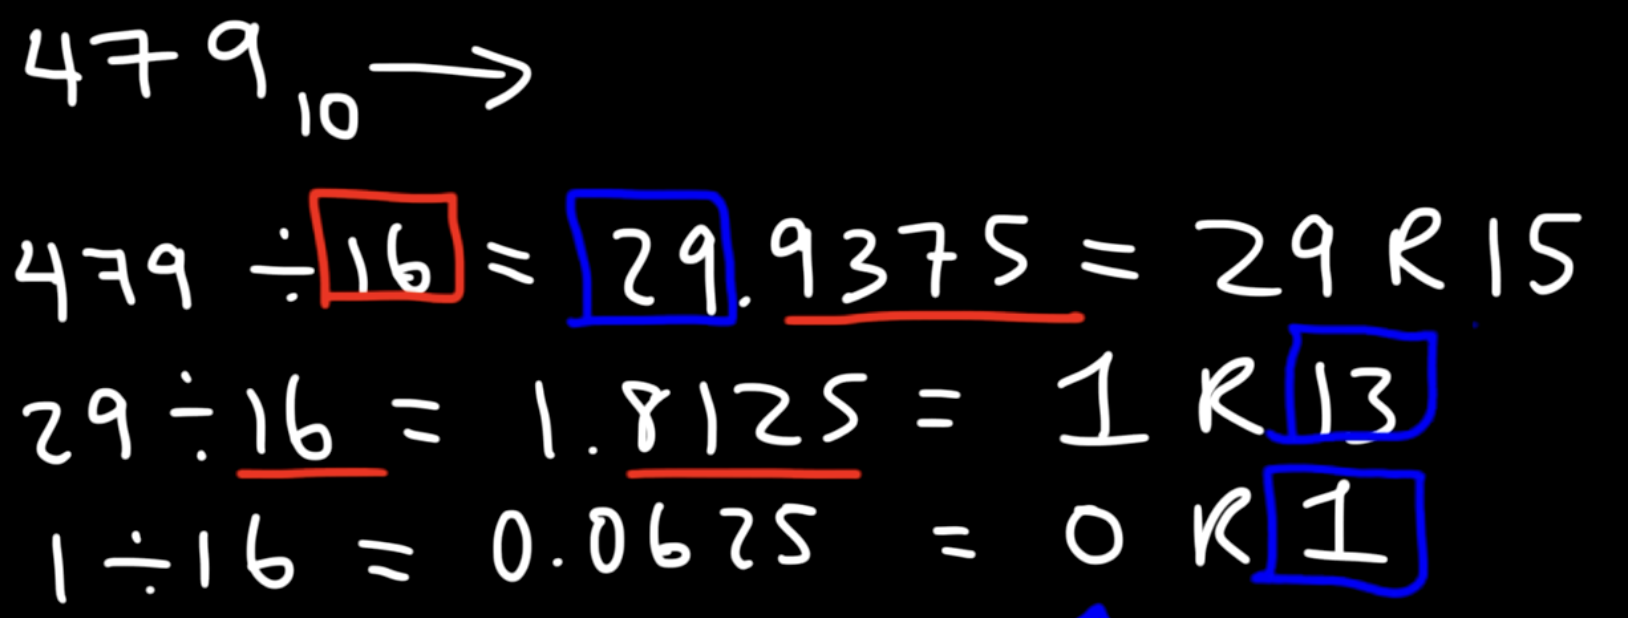 479₁₀ →
479 ÷ 16 = 29.9375 = 29 R 15
29 ÷ 16 = 1.8125 = 1 R 13
1 ÷ 16 = 0.0625 = 0 R 1